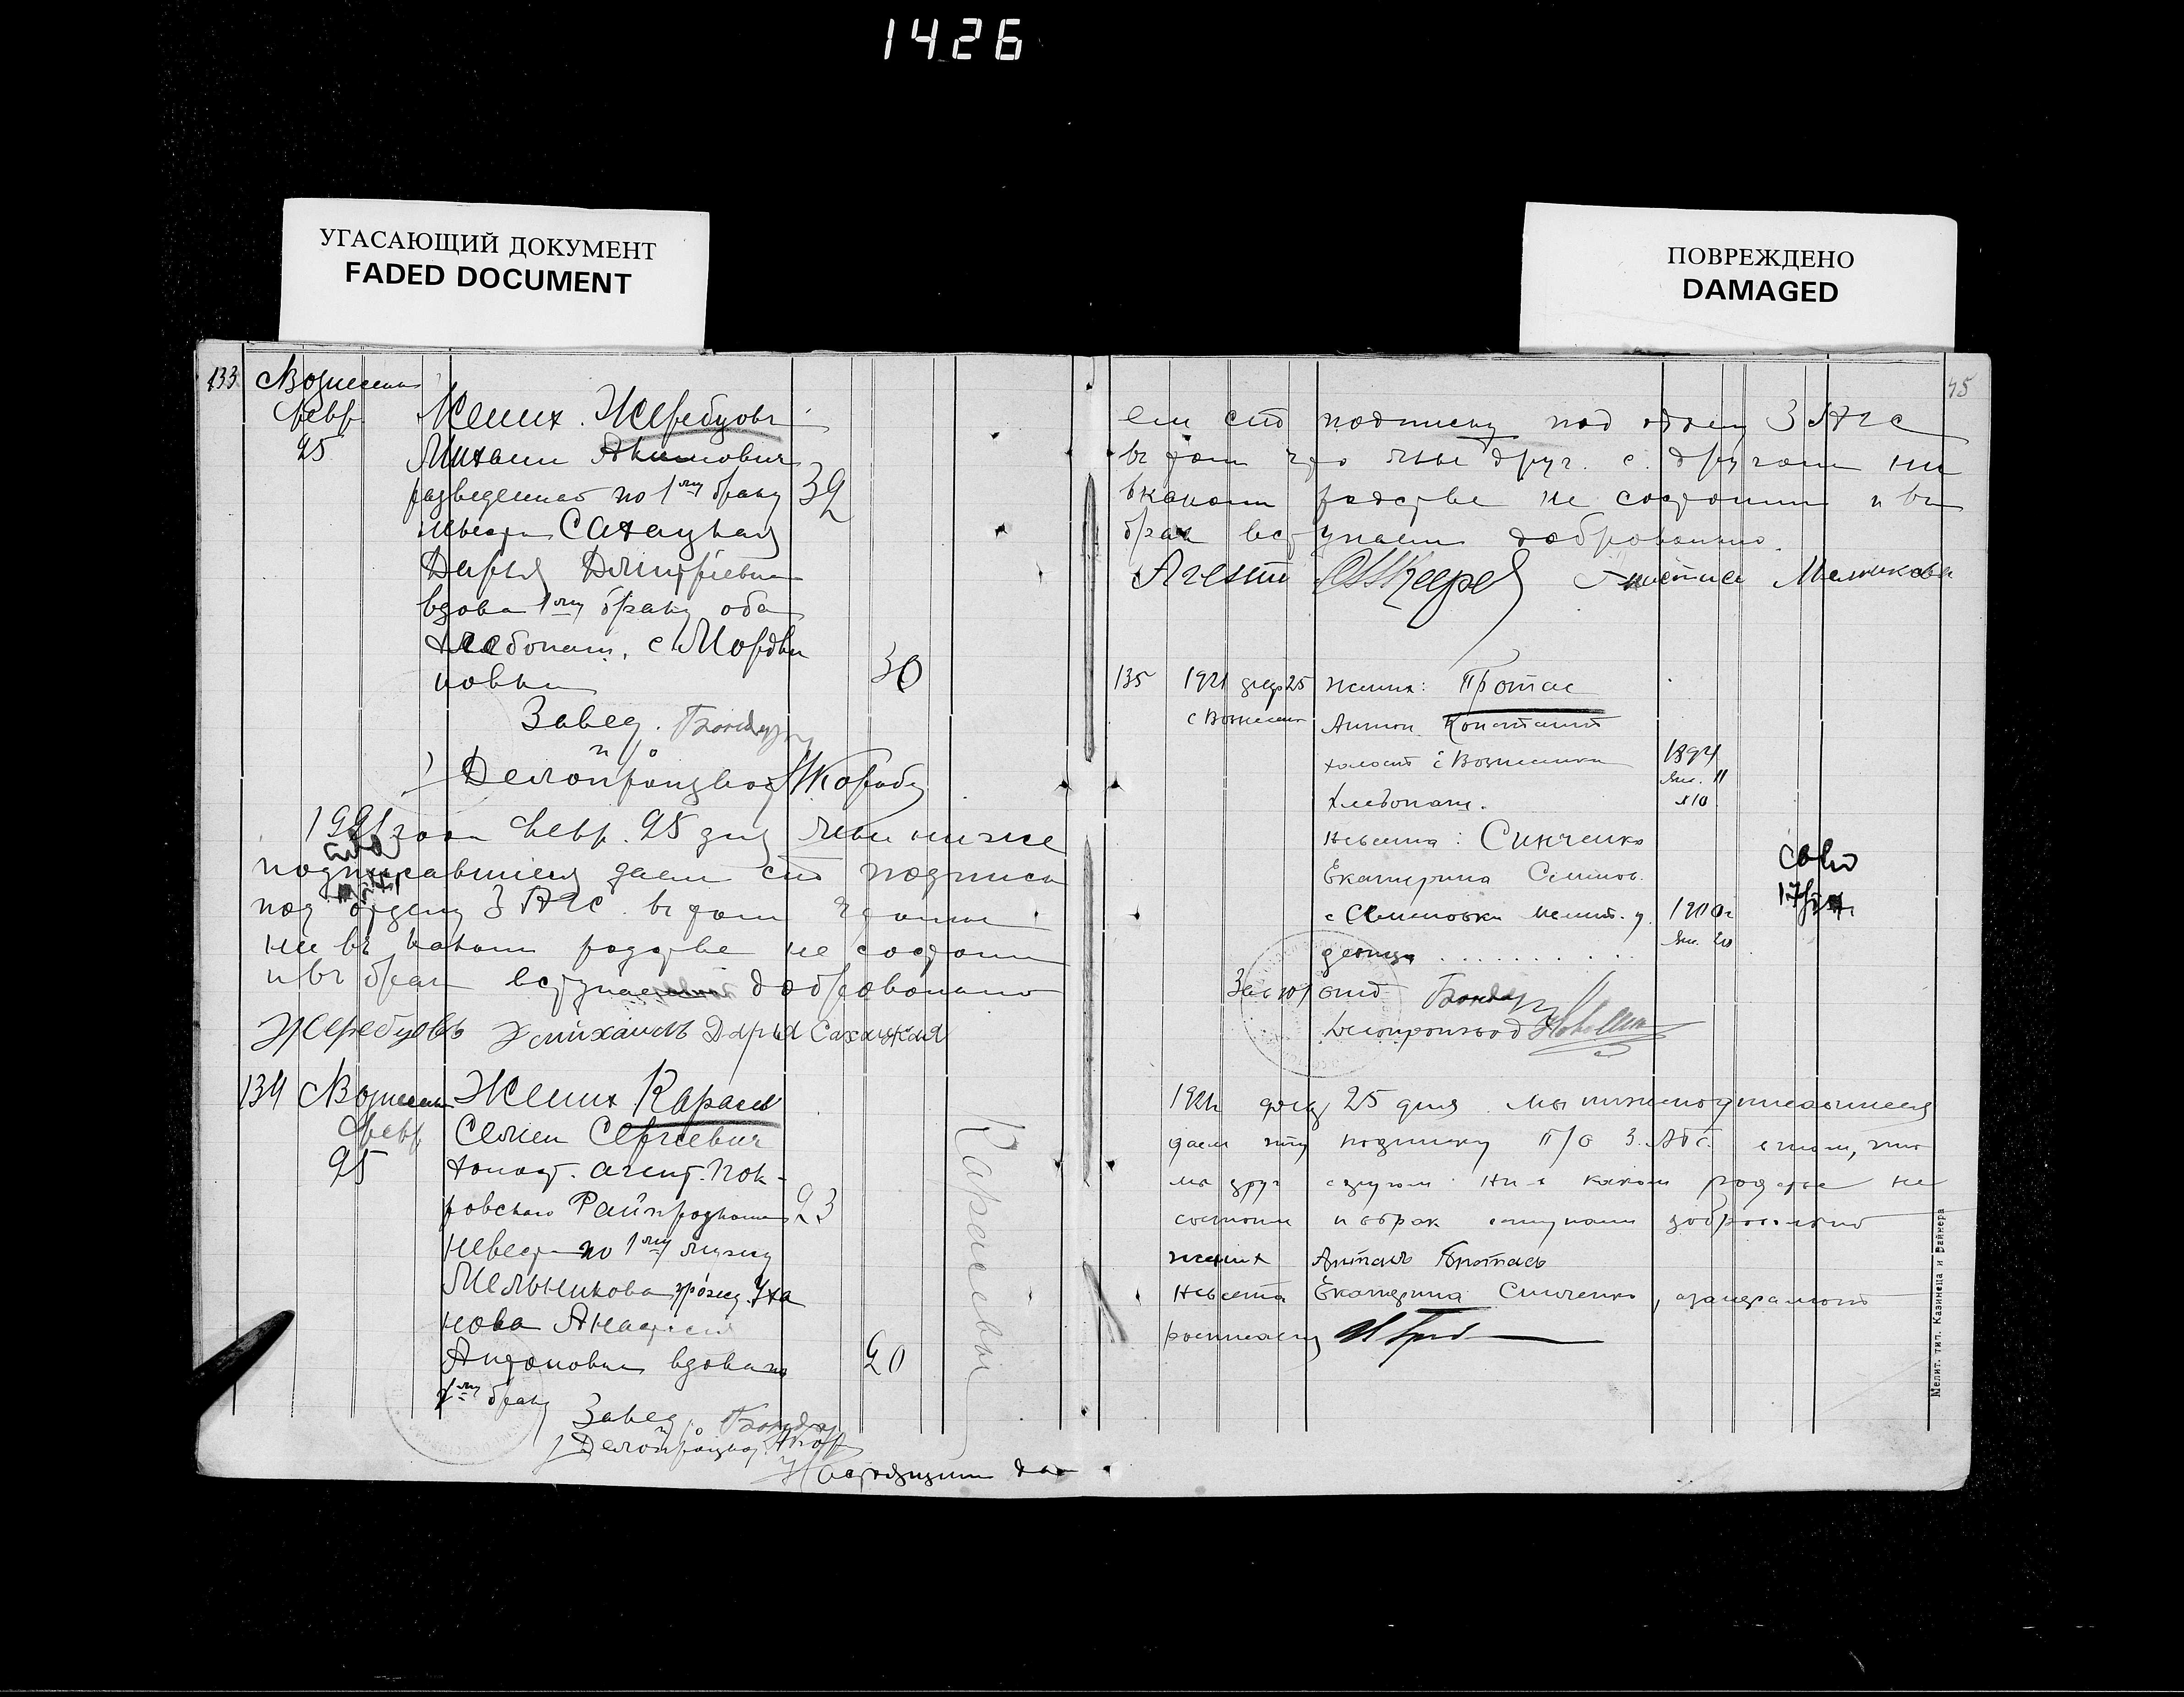 1426
УГАСАЮЩИЙ ДОКУМЕНТ
FADED DOCUMENT
ПОВРЕЖДЕНО
DAMAGED
133
февр.
25
Жених. Жеребцовъ
Михаил Акимович
разведенный по 1му браку 39
невеста Сахацкая
Дарья Дмитріевна
вдова 1му браку оба
хлебопаш. с Мордви
новки
30
Завед. Бондар
п/о
Делопроизвод
1921 года февр. 25 дня мы ниже
подписавшиеся даем сію подписку
под отделу ЗАГС. въ том что мы
ни въ каком родстве не состоим
и въ брак вступаем добровольно
Жеребцовъ Михаилъ Дарья Сахацкая
134
февр
25
Жених Карасев
Семен Сергеевич
холост. агент. Пок-
ровского Райпродкома 23
Невеста по 1му мужу
Мельникова урожд. Уха
нова Анастасия
Антоновна вдова по
1му браку
20
Карасевы
Завед. Бондар
п/о
Делопроизвод.
Настоящим да
45
ем сію подписку под отдел ЗАГС
въ том что мы друг. с. другом ни
в каком родстве не состоим и въ
брак вступаем добровольно.
Агент Мельникова
135
1921 25
Жених: Протас
Антон Констант
холост
1894
Янв. 11
хлебопаш.
Невеста: Синченко
Екатерина Семенов.
с Семеновки Мелит. у.
1900г
Янв. 20
девица
Зав п/отд Бондар
Делопроизвод
1921 25 дня мы нижеподписавшиеся
даем эту подписку П/О З.А.Г.С. в том, что
мы друг с другом ни в каком родстве не
состоим и в брак вступаем добровольно
жених Антонъ Протасъ
Невеста Екатерина Синченко, а за неграмот
росписался
Мелит. тип. Казинеца и Вайнера